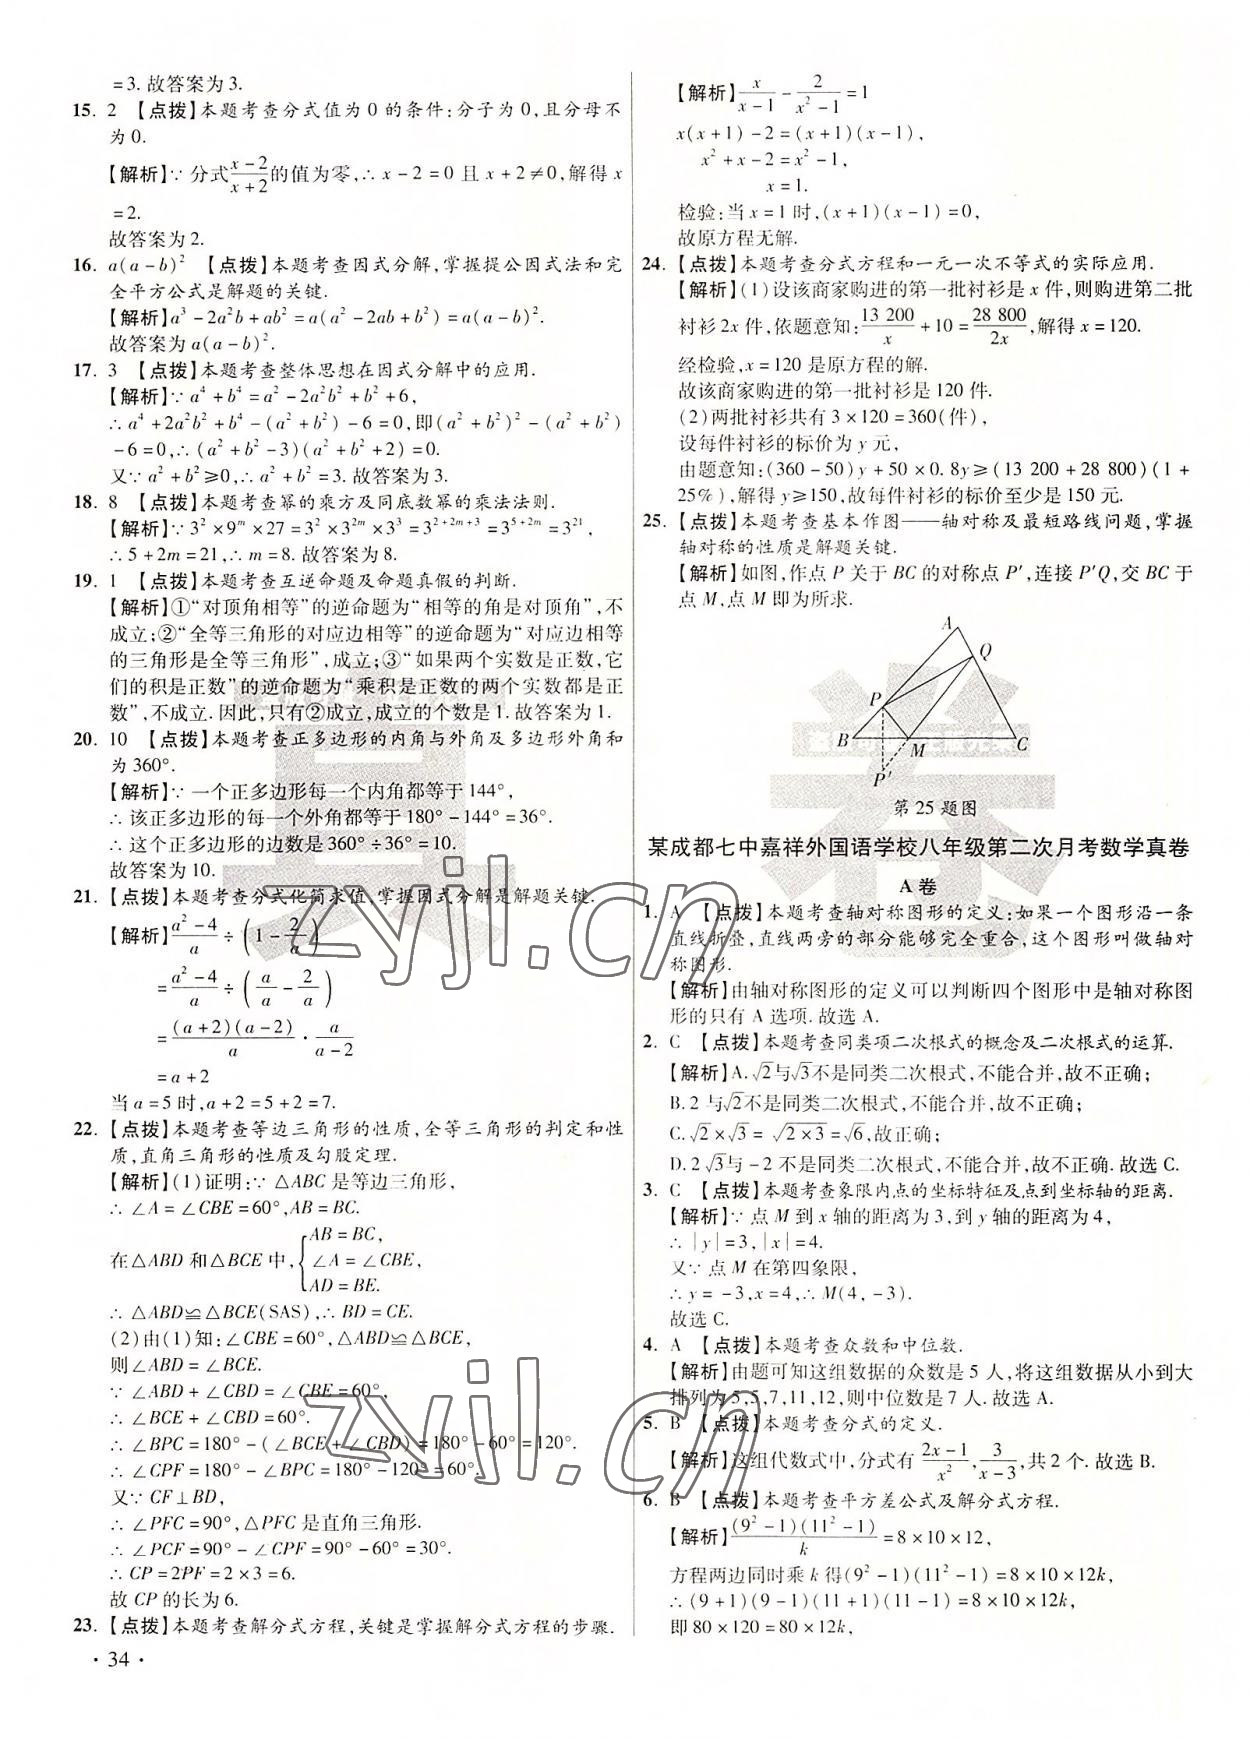 =3.故答案为3.
15. 2 【点拨】本题考查分式值为0的条件:分子为0,且分母不
为0.
【解析】∵分式(x-2)/(x+2)的值为零,∴x-2=0且x+2≠0,解得x
=2.
故答案为2.
16. a(a-b)² 【点拨】本题考查因式分解,掌握提公因式法和完
全平方公式是解题的关键.
【解析】a³-2a²b+ab²=a(a²-2ab+b²)=a(a-b)².
故答案为a(a-b)².
17. 3 【点拨】本题考查整体思想在因式分解中的应用.
【解析】∵a⁴+b⁴=a²-2a²b²+b²+6,
∴a⁴+2a²b²+b⁴-(a²+b²)-6=0,即(a²+b²)²-(a²+b²)
-6=0,∴(a²+b²-3)(a²+b²+2)=0.
又∵a²+b²≥0,∴a²+b²=3.故答案为3.
18. 8 【点拨】本题考查幂的乘方及同底数幂的乘法法则.
【解析】∵3²×9ᵐ×27=3²×3²ᵐ×3³=3²⁺²ᵐ⁺³=3⁵⁺²ᵐ=3²¹,
∴5+2m=21,∴m=8.故答案为8.
19. 1 【点拨】本题考查互逆命题及命题真假的判断.
【解析】①“对顶角相等”的逆命题为“相等的角是对顶角”,不
成立;②“全等三角形的对应边相等”的逆命题为“对应边相等
的三角形是全等三角形”,成立;③“如果两个实数是正数,它
们的积是正数”的逆命题为“乘积是正数的两个实数都是正
数”,不成立.因此,只有②成立,成立的个数是1.故答案为1.
20. 10 【点拨】本题考查正多边形的内角与外角及多边形外角和
为360°.
【解析】∵一个正多边形每一个内角都等于144°,
∴该正多边形的每一个外角都等于180°-144°=36°.
∴这个正多边形的边数是360°÷36°=10.
故答案为10.
21. 【点拨】本题考查分式化简求值,掌握因式分解是解题关键.
【解析】(a²-4)/a÷(1-2/a)
=(a²-4)/a÷(a/a-2/a)
=(a+2)(a-2)/a·a/(a-2)
=a+2
当a=5时,a+2=5+2=7.
22. 【点拨】本题考查等边三角形的性质,全等三角形的判定和性
质,直角三角形的性质及勾股定理.
【解析】(1)证明:∵△ABC是等边三角形,
∴∠A=∠CBE=60°,AB=BC.
在△ABD和△BCE中,{AB=BC,
∠A=∠CBE,
AD=BE.
∴△ABD≌△BCE(SAS),∴BD=CE.
(2)由(1)知:∠CBE=60°,△ABD≌△BCE,
则∠ABD=∠BCE.
∵∠ABD+∠CBD=∠CBE=60°,
∴∠BCE+∠CBD=60°.
∴∠BPC=180°-(∠BCE+∠CBD)=180°-60°=120°.
∴∠CPF=180°-∠BPC=180°-120°=60°.
又∵CF⊥BD,
∴∠PFC=90°,△PFC是直角三角形.
∴∠PCF=90°-∠CPF=90°-60°=30°.
∴CP=2PF=2×3=6.
故CP的长为6.
23. 【点拨】本题考查解分式方程,关键是掌握解分式方程的步骤.
·34·
【解析】x/(x-1)-2/(x²-1)=1
x(x+1)-2=(x+1)(x-1),
x²+x-2=x²-1,
x=1.
检验:当x=1时,(x+1)(x-1)=0,
故原方程无解.
24. 【点拨】本题考查分式方程和一元一次不等式的实际应用.
【解析】(1)设该商家购进的第一批衬衫是x件,则购进第二批
衬衫2x件,依题意知:13 200/x+10=28 800/2x,解得x=120.
经检验,x=120是原方程的解.
故该商家购进的第一批衬衫是120件.
(2)两批衬衫共有3×120=360(件),
设每件衬衫的标价为y元,
由题意知:(360-50)y+50×0.8y≥(13 200+28 800)(1+
25%),解得y≥150,故每件衬衫的标价至少是150元.
25. 【点拨】本题考查基本作图——轴对称及最短路线问题,掌握
轴对称的性质是解题关键.
【解析】如图,作点P关于BC的对称点P′,连接P′Q,交BC于
点M,点M即为所求.
A
Q
P
B M C
P′
第25题图
某成都七中嘉祥外国语学校八年级第二次月考数学真卷
A卷
1. A 【点拨】本题考查轴对称图形的定义:如果一个图形沿一条
直线折叠,直线两旁的部分能够完全重合,这个图形叫做轴对
称图形.
【解析】由轴对称图形的定义可以判断四个图形中是轴对称图
形的只有A选项.故选A.
2. C 【点拨】本题考查同类项二次根式的概念及二次根式的运算.
【解析】A.√2与√3不是同类二次根式,不能合并,故不正确;
B.2与√2不是同类二次根式,不能合并,故不正确;
C.√2×√3=√(2×3)=√6,故正确;
D.2√3与-2不是同类二次根式,不能合并,故不正确.故选C.
3. C 【点拨】本题考查象限内点的坐标特征及点到坐标轴的距离.
【解析】∵点M到x轴的距离为3,到y轴的距离为4,
∴|y|=3,|x|=4.
又∵点M在第四象限,
∴y=-3,x=4,∴M(4,-3).
故选C.
4. A 【点拨】本题考查众数和中位数.
【解析】由题可知这组数据的众数是5人,将这组数据从小到大
排列为5,5,7,11,12,则中位数是7人.故选A.
5. B 【点拨】本题考查分式的定义.
【解析】这组代数式中,分式有(2x-1)/x²,3/(x-3),共2个.故选B.
6. B 【点拨】本题考查平方差公式及解分式方程.
【解析】(9²-1)(11²-1)/k=8×10×12,
方程两边同时乘k得(9²-1)(11²-1)=8×10×12k,
∴(9+1)(9-1)(11+1)(11-1)=8×10×12k,
即80×120=80×12k,
真卷
zyjl.cn
zyjl.cn